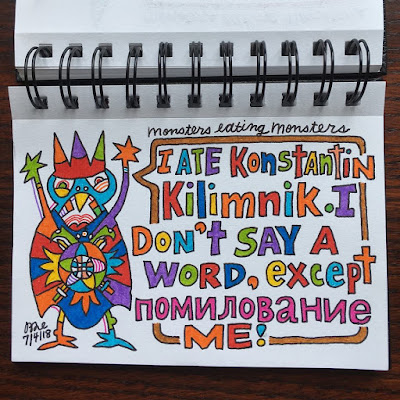 monsters eating monsters
I ATE KONSTANTIN
Kilimnik. I
DON'T SAY A
WORD, except
помилование
ME!
7/4/18